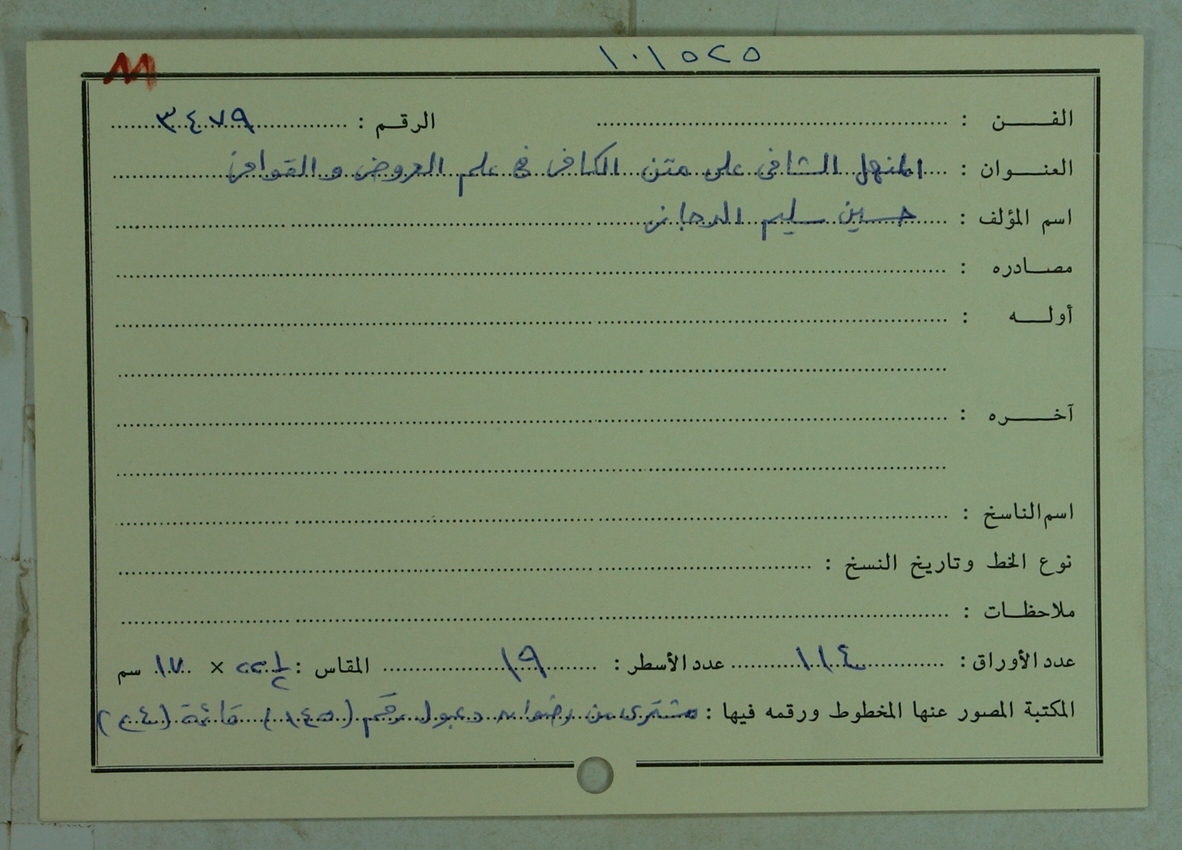 ١٠١٥٢٥
M
الفن : الرقم : ٣٤٧٩
العنوان : المنهل الشافي على متن الكافي في علم العروض والقوافي
اسم المؤلف : حسين سليم الدجاني
مصادره :
أوله :
آخره :
اسم الناسخ :
نوع الخط وتاريخ النسخ :
ملاحظات :
عدد الأوراق : ١١٤ عدد الأسطر : ١٩ المقاس : ٢٢½ × ١٧ سم
المكتبة المصور عنها المخطوط ورقمه فيها : مشترى من رضوان دعبول رقم (١٤٥) قائمة (٢٤)